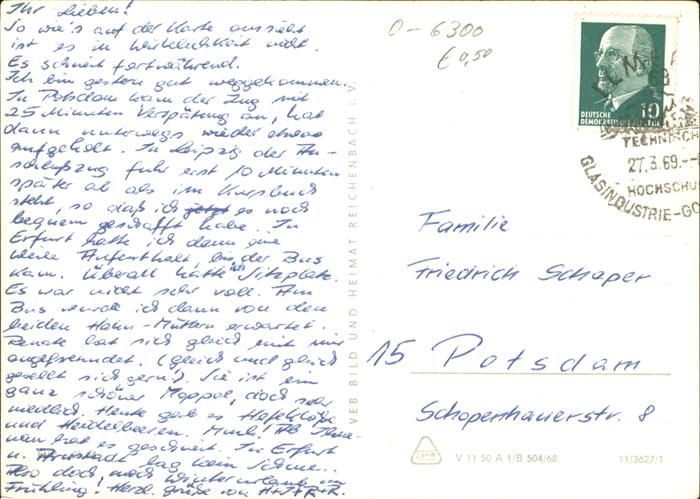 Ihr Lieben!
So wie's auf der Karte aussieht
ist es in Wirklichkeit nicht.
Es schneit fortwährend.
Ich bin gestern gut weggekommen.
In Potsdam kam der Zug mit
25 Minuten Verspätung an, hat
dann unterwegs wieder etwas
aufgeholt. In Leipzig der An-
schlußzug fuhr erst 10 Minuten
später ab als im Kursbuch
steht, so daß ich jetzt es noch
bequem geschafft habe. In
Erfurt hatte ich dann eine
Weile Aufenthalt, bis der Bus
kam. Überall hatte ich Sitzplatz.
Es war nicht sehr voll. Am
Bus wurde ich dann von den
beiden Hahn-Müttern erwartet.
Renate hat sich gleich mit mir
angefreundet. (gleich und gleich
gesellt sich gern!) Sie ist ein
ganz schöner Moppel, doch sehr
niedlich. Heute gab es Hefeklöße
und Heidelbeeren. Mmh! Ab Ilme-
nau hat es geschneit. In Erfurt
u. Arnstadt lag kein Schnee.
Also doch noch Winterurlaub im
Frühling! Herzl. Grüße von
VEB BILD UND HEIMAT REICHENBACH I. V.
0-6300
€ 0,50
10
DEUTSCHE
DEMOKRATISCHE
TECHNISCH
27.3.69.--
HOCHSCHU
GLASINDUSTRIE-GO
Familie
Friedrich Schaper
15 Potsdam
Schopenhauerstr. 8
V 11 50 A 1/B 504/68
11/3627/1